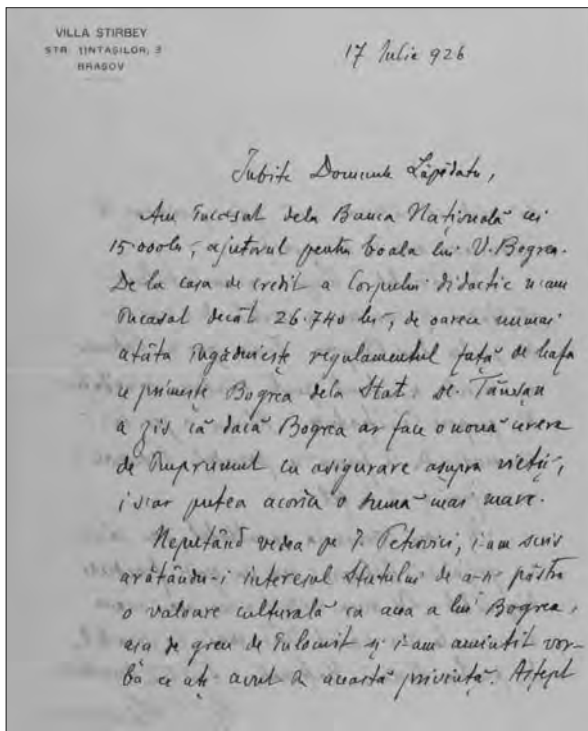 VILLA STIRBEY
STR. ŢINTAŞILOR, 3
BRASOV
17 Iulie 926
Iubite Domnule Lăpĕdatu,
Am încasat dela Banca Naţională cei
15.000 lei, ajutorul pentru boala lui V. Bogrea.
De la casa de credit a Corpului didactic n'am
încasat decât 26.740 lei, de oarece numai
atâta îngăduieşte regulamentul faţă de leafa
ce primeşte Bogrea dela Stat. Dl. Tăuşan
a zis că dacă Bogrea ar face o nouă cerere
de împrumut cu asigurare asupra vieţii,
i s'ar putea acorda o sumă mai mare.
Neputând vedea pe I. Petrovici, i-am scris
arătându-i interesul Statului de a-şi păstra
o valoare culturală ca aceea a lui Bogrea,
aşa de greu de înlocuit şi i-am amintit vor-
ba ce aţi avut în această privinţă. Aştept